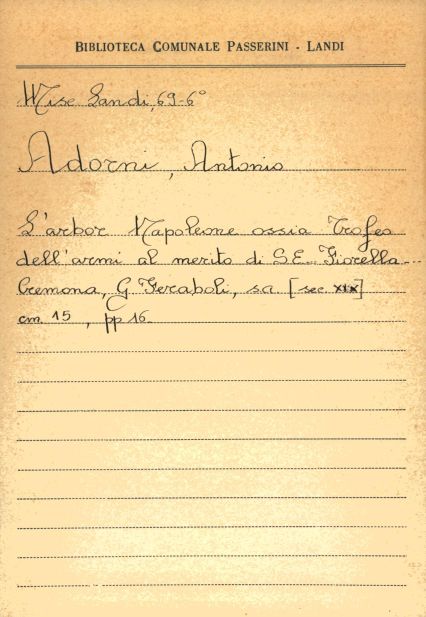 BIBLIOTECA COMUNALE PASSERINI - LANDI
Misc Landi, 69-6°
Adorni, Antonio
L'arbor Napoleone ossia Trofeo
dell'armi al merito di S.E. Fiorella...
Cremona, G Feraboli, sa [sec XIX]
cm. 15, pp 16